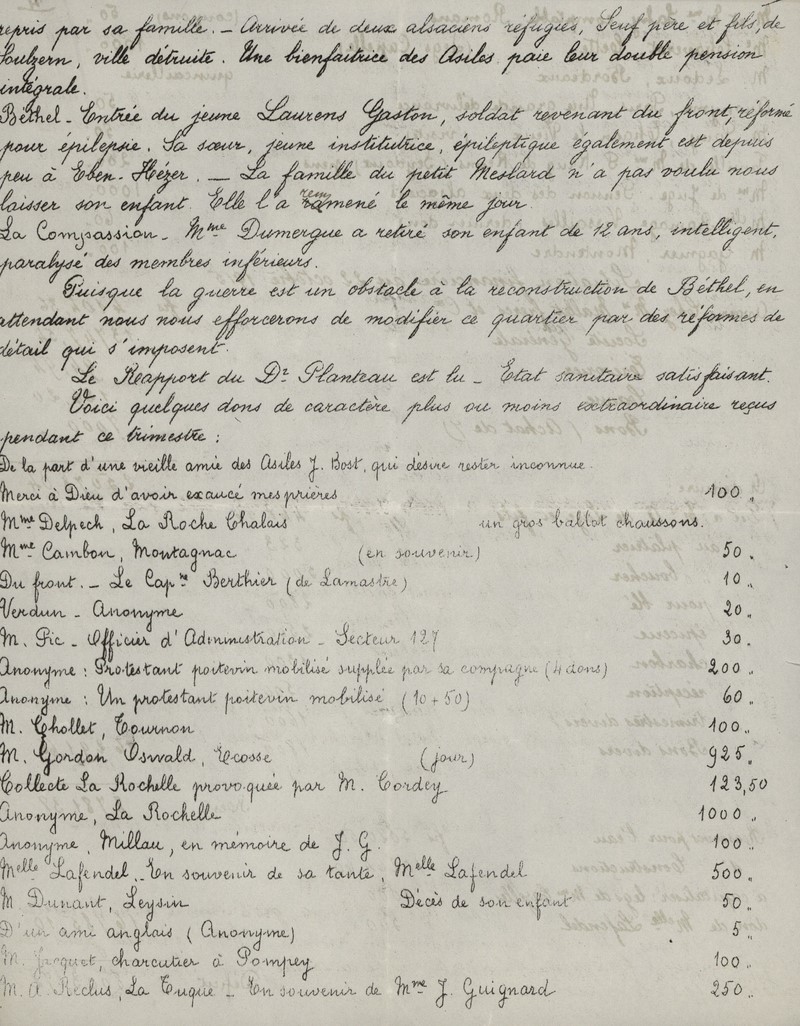 repris par sa famille. — Arrivée de deux alsaciens réfugiés, Seuf père et fils, de
Soulzern, ville détruite. Une bienfaitrice des Asiles paie leur double pension
intégrale.
Béthel - Entrée du jeune Laurens Gaston, soldat revenant du front, réformé
pour épilepsie. Sa sœur, jeune institutrice, épileptique également est depuis
peu à Eben-Hézer. — La famille du petit Meslard n'a pas voulu nous
laisser son enfant. Elle l'a remmené le même jour
La Compassion - Mme Dumergue a retiré son enfant de 12 ans, intelligent,
paralysé des membres inférieurs.
Puisque la guerre est un obstacle à la reconstruction de Béthel, en
attendant nous nous efforcerons de modifier ce quartier par des réformes de
détail qui s'imposent.
Le Rapport du Dr Planteau est lu - Etat sanitaire satisfaisant.
Voici quelques dons de caractère plus ou moins extraordinaire reçus
pendant ce trimestre :
De la part d'une vieille amie des Asiles J. Bost, qui désire rester inconnue.
Merci à Dieu d'avoir exaucé mes prières 100 "
Mme Delpech, La Roche Chalais un gros ballot chaussons.
Mme Cambon, Montagnac (en souvenir) 50 "
Du front. - Le Capne Berthier (de Lamastre) 10 "
Verdun - Anonyme 20 "
M. Pic - Officier d'Administration - Secteur 127 30 "
Anonyme : Protestant poitevin mobilisé supplée par sa compagne (4 dons) 200 "
Anonyme : Un protestant poitevin mobilisé (10 + 50) 60 "
M. Chollet, Tournon 100 "
M. Gordon Oswald, Ecosse (jour) 925 "
Collecte La Rochelle provoquée par M. Cordey 123,50
Anonyme, La Rochelle 1000 "
Anonyme, Millau, en mémoire de J. G. 100 "
Melle Lafendel. - En souvenir de sa tante, Melle Lafendel 500 "
M. Dunant, Leysin Décès de son enfant 50 "
D'un ami anglais (Anonyme) 5 "
M. Jacquet, charcutier à Pompey 100 "
M. A. Reclus, La Tuque - En souvenir de Mme J. Guignard 250 "